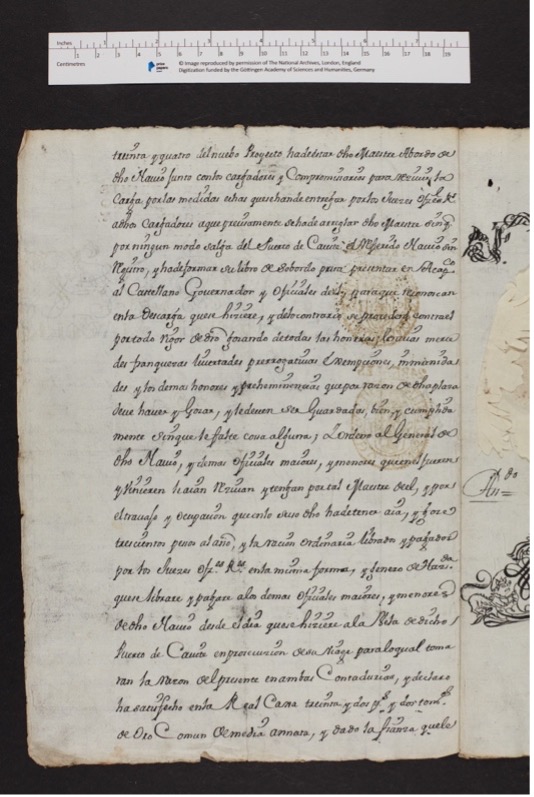 Inches 1 2 3 4 5 6 7 8
Centimetres 1 2 3 4 5 6 7 8 9 10 11 12 13 14 15 16 17 18 19
prize papers
© Image reproduced by permission of The National Archives, London, England
Digitization funded by the Göttingen Academy of Sciences and Humanities, Germany
treinta y quatro del nuebo Proyecto hadeestar dho Maestre Abordo de
dho Navio junto conlos cargadores y Compromisarios para la
Carga por las medidas quesehande entregar por los Juezes
adhos Cargadores aque precisamente sehade arreglar dho Maestre sinq
por ningun modo salga del Puerto de Cavite el Referido Navio sin
Registro, y hadeformar su libro de Sobordo para presentar en
al Castellano Governador y Oficiales para que reconoscan
enla descarga que se hiziere, y delo contrario se procedera contra el
por todo Rigor de dro gosando detodas las honrras, gracias merce
des franquezas livertades prerrogativas Exempciones, inmunida
des y los demas honores y preheminencias que por razon de dha plasa
deve haver y Gosar, y sedeven ser Guardadas, bien, y cumplida
mente sinque le falte cosa alguna; y ordeno al General de
dho Navio, y demas Oficiales maiores, y menores quienes fueren
y vinieren haian Resivan y tengan por tal Maestre del, y por
eltravajo y Ocupasion que conlo suso dho hadetener aia, y goze
trescientos pesos al año, y la racion Ordinaria librados y pagados
por los Juezes enla misma forma, y genero de
quese librare y pagare alos demas Oficiales maiores, y menores
de dho Navio desde el dia quese hiziere ala Vela de dicho
Puerto de Cavite en prosecusion de su Viage paralo qual toma
ran la razon del presente en ambas Contadurias, y declaro
ha satisfecho enla Real Caxa treinta y dos p.s y dos tom.s
de Oro Comun de media annata, y dado la fianza quele